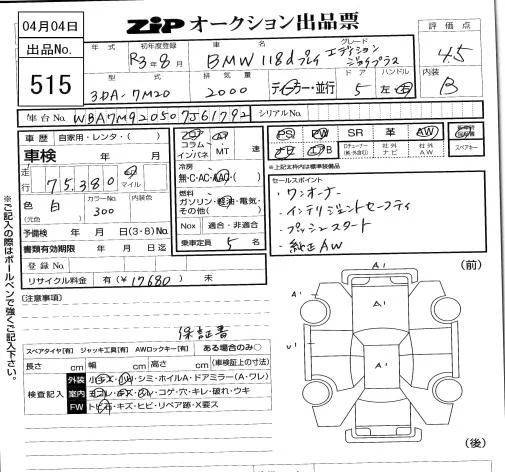 04月04日
ZIP オークション出品票
出品No.
515
評価点
4.5
内装
B
年式
初年度登録
車名
グレード
R3年8月
BMW 118d プレイ
エディション
ジョイプラス
型式
排気量
ドア
ハンドル
3DA-7M20
2000
ディーラー・並行
5
左・右
車台No.
WBA7M920507J61792
シリアルNo.
車歴
自家用・レンタ・( )
車検
年 月
走行
75,380
マイル
色
白
(元色)
カラーNo.
300
内装色
予備検 年 月 日(3・8)No.
書類有効期限 年 月 日迄
登録No.
リサイクル料金 有(¥ 17680 ) 未
コラム
インパネ
MT
速
冷房
無・C・AC・AAC・( )
燃料
ガソリン・軽油・電気・
その他( )
Nox
適合・非適合
乗車定員 5 名
PS
PW
SR
革
AW
社外
ナビ
社外
AW
スペアキー
※上記太枠内は標準装備品
セールスポイント
・ワンオーナー
・インテリジェントセーフティ
・プッシュスタート
・純正AW
(注意事項)
保証書
スペアタイヤ[有] ジャッキ工具[有] AWロックキー[有] ある場合のみ○
長さ cm 幅 cm 高さ cm (車検証上の寸法)
検査記入
外装
小キズ・小凹・シミ・ホイルA・ドアミラー(A・ワレ)
室内
ヨゴレ・キズ・スレ・コゲ・穴・キレ・破れ・ウキ
FW
トビ石・キズ・ヒビ・リペア跡・X要ス
(前)
A1
A1
A1
A1
U1
A1
A1
(後)
※ご記入の際はボールペンで強くご記入下さい。